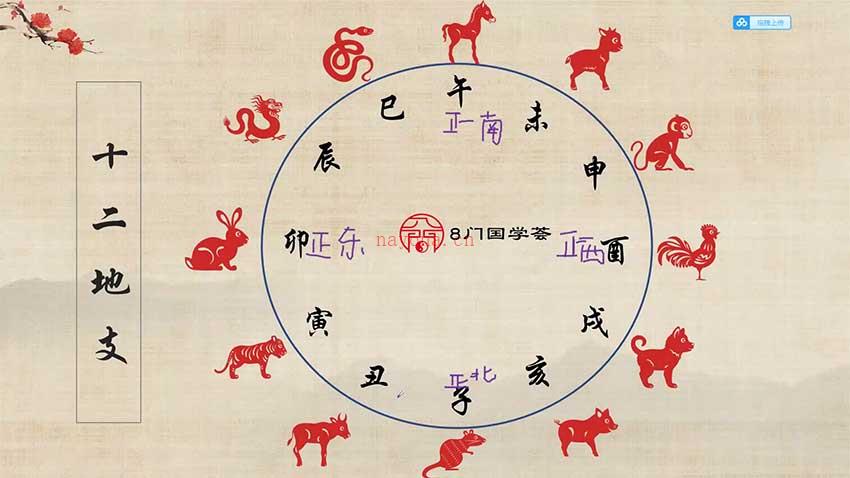 拖拽上传
十二地支
午
巳
未
正南
辰
申
卯
正东
8门国学荟
正西
酉
寅
戌
丑
正北
亥
子